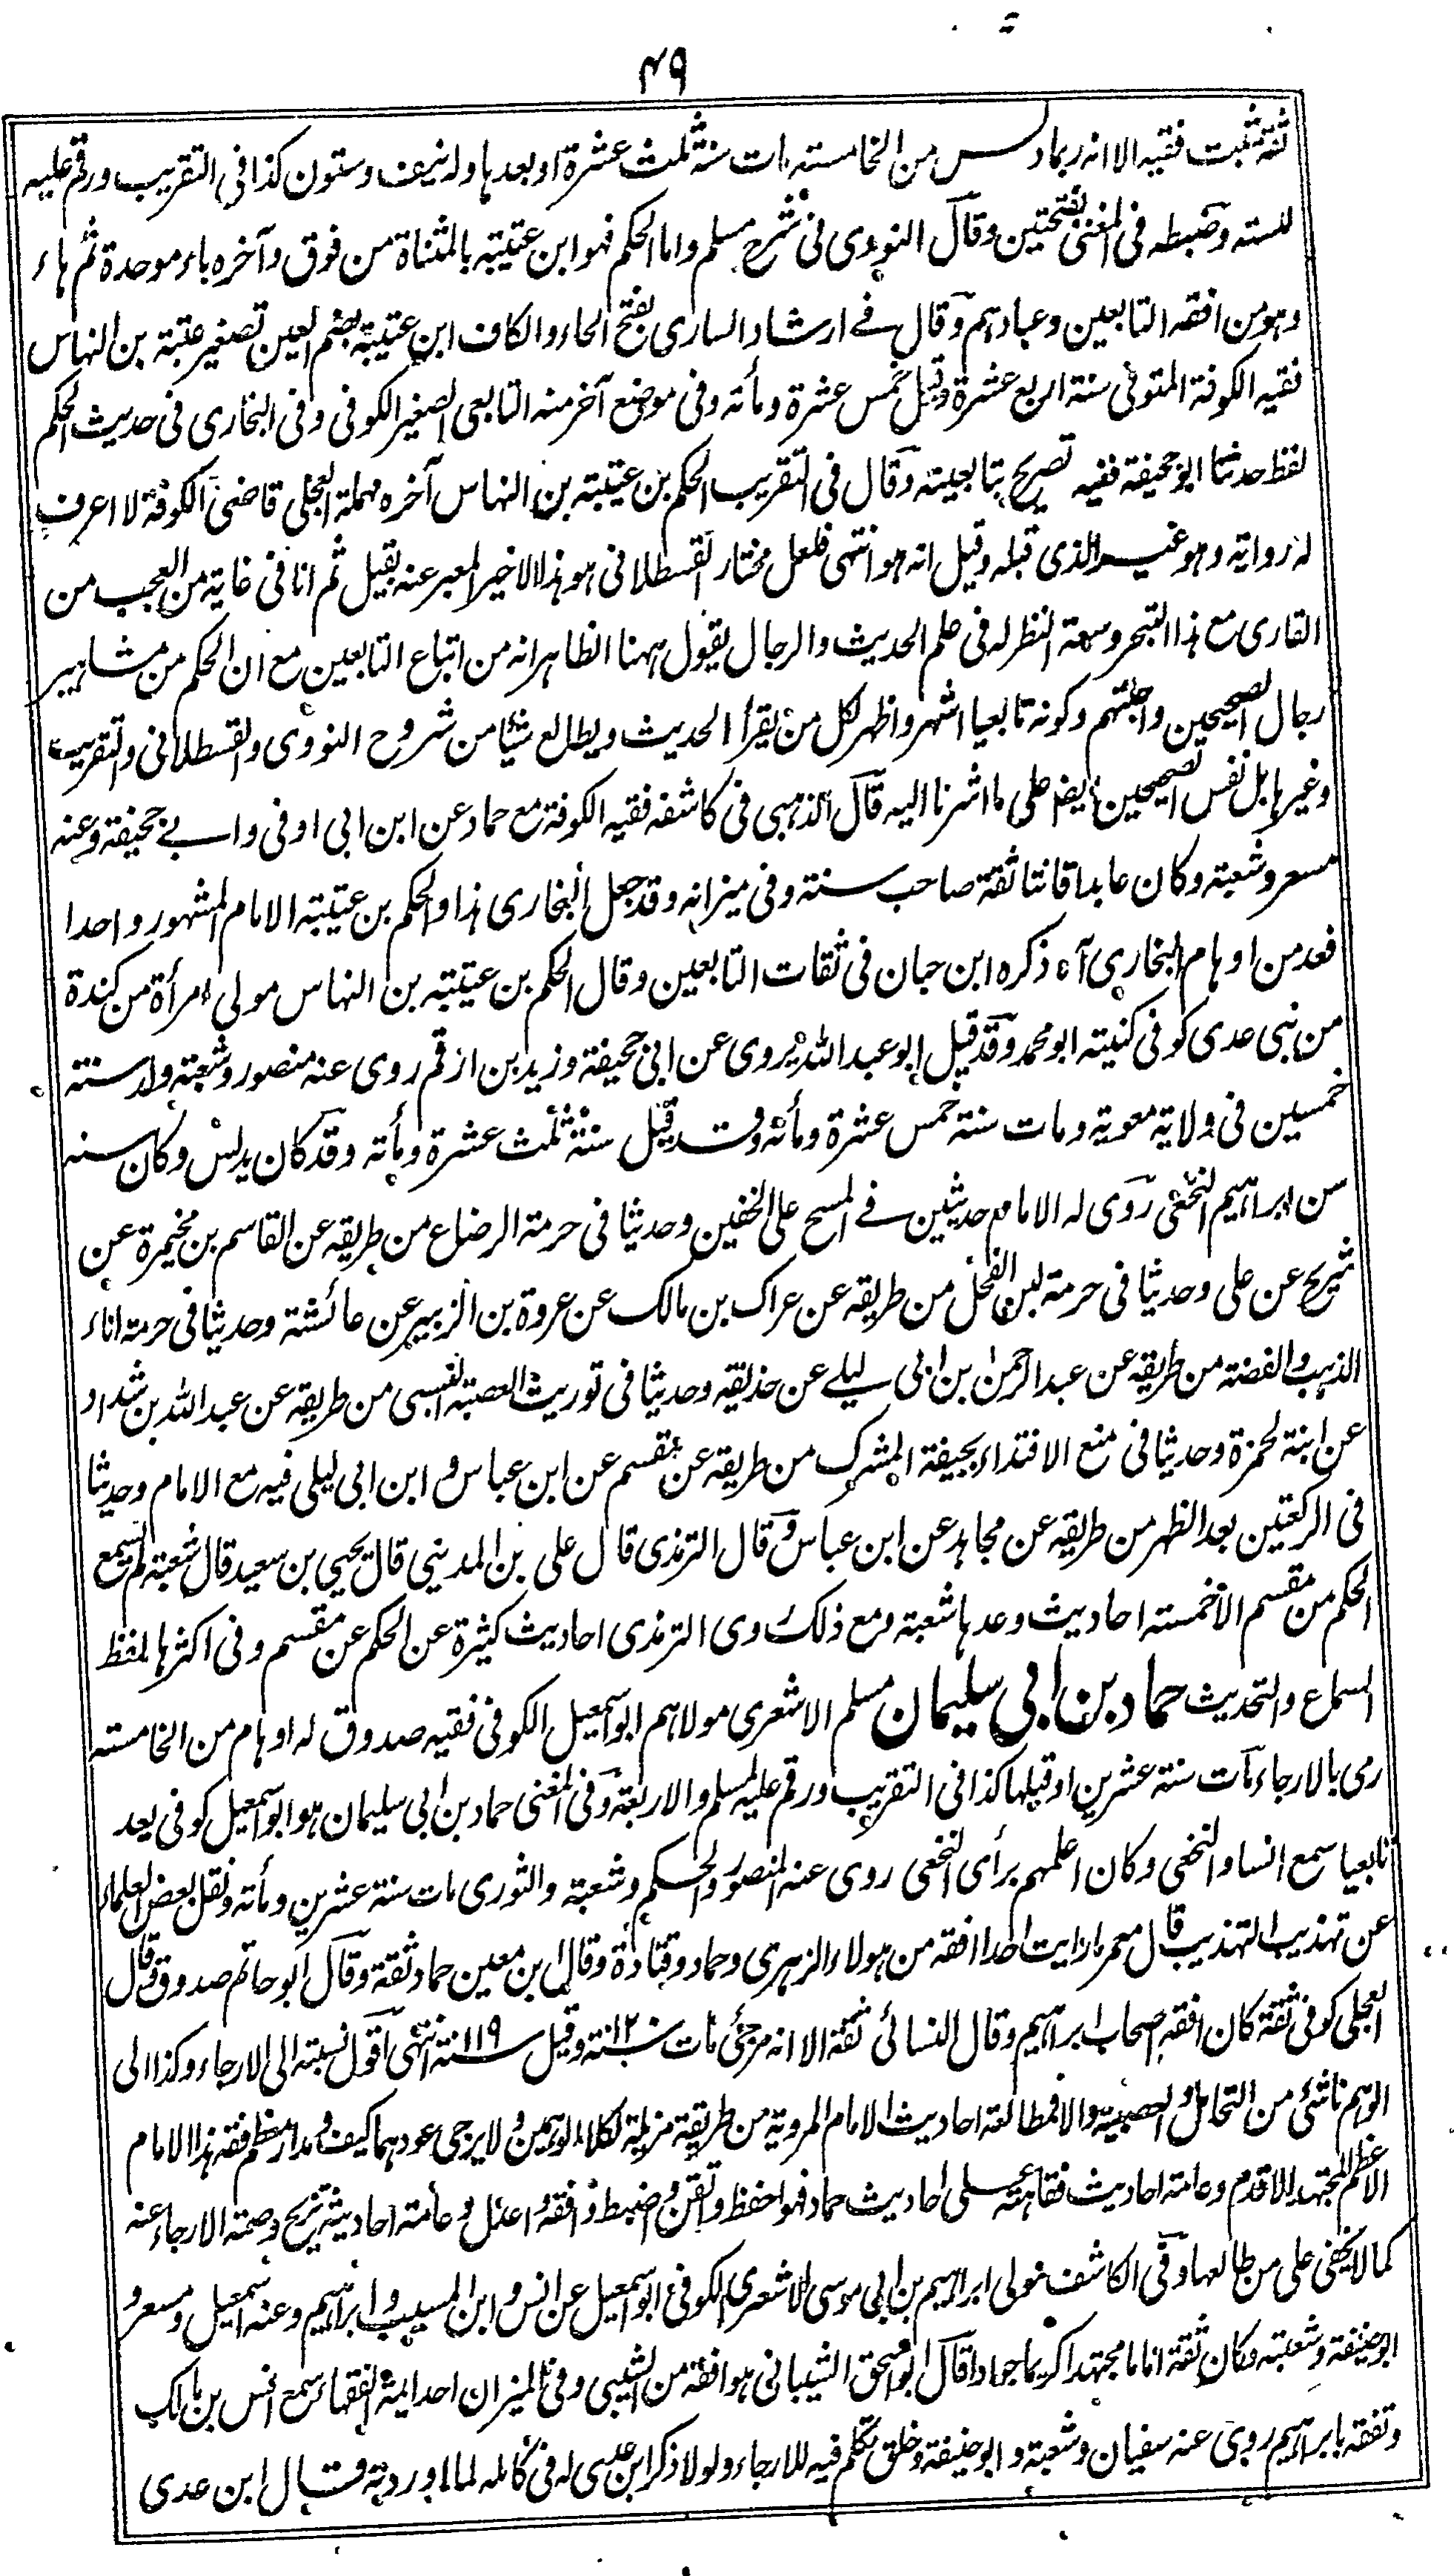 ۴۹
ثقة ثبت فقيه الا انه ربما دلس من الخامسة مات سنة ثلث عشرة او بعدها وله نيف وستون كذا في التقريب ورقم عليه
للستة وضبطه في المغنى بفتحتين وقال النووى فى شرح مسلم واما الحكم فهو ابن عتيبة بالمثناة من فوق وآخره باء موحدة ثم هاء
وهو من افقه التابعين وعبادهم وقال فے ارشاد السارى بفتح الحاء والكاف ابن عتيبة بضم العين تصغير عتبة بن النهاس
فقيه الكوفة المتوفى سنة اربع عشرة وقيل خمس عشرة ومأته وفى موضع آخر منه التابعى الصغير الكوفى وفى البخارى فى حديث الحكم
لفظ حدثنا ابو جحيفة ففيه تصريح بتابعيته وقال فى التقريب الحكم بن عتيبة بن النهاس آخره مهملة العجلى قاضى الكوفة لا اعرف
له رواية وهو غير الذى قبله وقيل انه هو انتهى فلعل مختار القسطلانى هو هذا الاخير المعبر عنه بقيل ثم انا فى غاية من العجب من
القارى مع هذا التبحر وسعة النظر له فى علم الحديث والرجال يقول ههنا الظاهر انه من اتباع التابعين مع ان الحكم من مشاهير
رجال الصحيحين واجلتهم وكونه تابعيا اشهر واظهر لكل من يقرأ الحديث ويطالع شيئا من شروح النووى والقسطلانى والتقريب
وغيرها بل نفس الصحيحين ايضا على ما اشرنا اليه قال الذهبى فى كاشفه فقيه الكوفة مع حماد عن ابن ابى اوفى وابے جحيفة وعنه
مسعر وشعبة وكان عابدا قانتا ثقة صاحب سنة وفى ميزانه وقد جعل البخارى هذا والحكم بن عتيبة الامام المشهور واحدا
فعد من اوهام البخارى آه ذكره ابن حبان فى ثقات التابعين وقال الحكم بن عتيبة بن النهاس مولى امرأة من كندة
من بنى عدى كوفى كنيته ابو محمد وقد قيل ابو عبد الله يروى عن ابى جحيفة وزيد بن ارقم روى عنه منصور وشعبة ولد سنة
خمسين فى ولاية معوية ومات سنة خمس عشرة ومأته وقد قيل سنة ثلث عشرة ومأته وقد كان يدلس وكان سنه
سن ابراهيم النخعى روى له الامام حديثين فے المسح على الخفين وحديثا فى حرمة الرضاع من طريقه عن القاسم بن مخيمرة عن
شريح عن على وحديثا فى حرمة لبن الفحل من طريقه عن عراك بن مالك عن عروة بن الزبير عن عائشة وحديثا فى حرمة اناء
الذهب والفضة من طريقه عن عبد الرحمن بن ابى ليلے عن حذيفة وحديثا فى توريث العصبة من طريقه عن عبد الله بن شداد
عن ابنة لحمزة وحديثا فى منع الافتداء بجيفة المشرك من طريقه عن مقسم عن ابن عباس و ابن ابى ليلى فيه مع الامام وحديثا
فى الركعتين بعد الظهر من طريقه عن مجاهد عن ابن عباس وقال الترمذى قال على بن المدينى قال يحيى بن سعيد قال شعبة لم يسمع
الحكم من مقسم الا خمسة احاديث وعدها شعبة ومع ذلك روى الترمذى احاديث كثيرة عن الحكم عن مقسم وفى اكثرها لفظ
السماع والتحديث حماد بن ابى سليمان مسلم الاشعرى مولاهم ابو اسمعيل الكوفى فقيه صدوق له اوهام من الخامسة
رمى بالارجاء مات سنة عشرين او قبلها كذا فى التقريب ورقم عليه لمسلم والاربعة وفى المغنى حماد بن ابى سليمان هو ابو اسمعيل كوفى يعد
تابعيا سمع انسا والنخعى وكان اعلمهم برأى النخعى روى عنه المنصور والحكم وشعبة والثورى مات سنة عشرين ومأته ونقل بعض العلماء
عن تهذيب التهذيب قال معمر ما رايت احدا افقه من هولاء الزهرى وحماد وقتادة وقال ابن معين حماد ثقة وقال ابو حاتم صدوق وقال
العجلى كوفى ثقة كان افقه اصحاب ابراهيم وقال النسائى ثقة الا انه مرجئى مات سنة ۱۲۰ وقيل سنة ۱۱۹ انتهى اقول نسبته الى الارجاء وكذا الى
الوهم ناشئ من التحامل والعصبية والا فمطالعة احاديث الامام المروية من طريقه مزيلة لكلا الوهمين ولا يرجى عودهما كيف ومدار معظم فقه هذا الامام
الاعظم المجتهد الاقدم وعامة احاديث فقاهته على احاديث حماد فهو احفظ واتقن واضبط وافقه واعدل وعامة احاديثه تزيح وصمة الارجاء عنه
كما لا يخفى على من طالعها وفى الكاشف مولى ابراهيم بن ابى موسى الاشعرى الكوفى ابو اسمعيل عن انس وابن المسيب وابراهيم وعنه اسمعيل ومسعر و
ابو حنيفة وشعبة وكان ثقة اماما مجتهدا كريما جوادا قال ابو اسحق الشيبانى هو افقه من الشعبى وفى الميزان احد ايمة الفقهاء سمع انس بن مالك
وتفقه بابراهيم روى عنه سفيان وشعبة وابو حنيفة وخلق تكلم فيه للارجاء ولولا ذكر ابن عدى له فى كامله لما اوردته قال ابن عدى